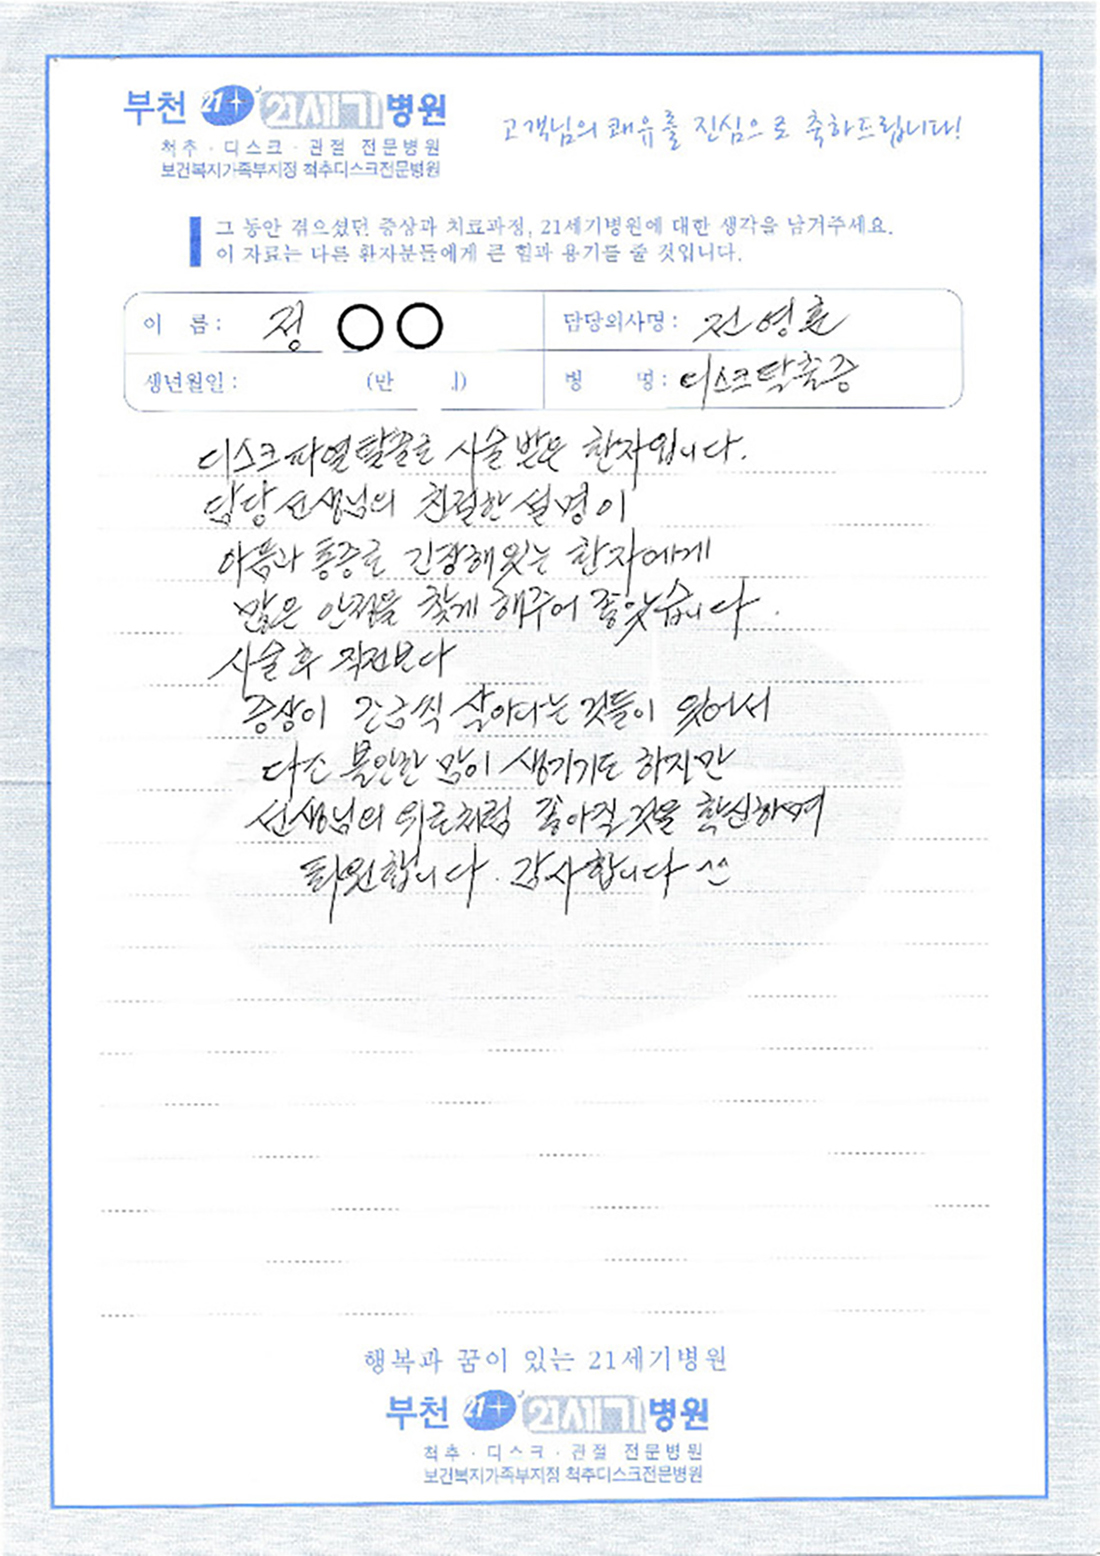 부천 21+ 21세기병원
척추 · 디스크 · 관절 전문병원
보건복지가족부지정 척추디스크전문병원
고객님의 쾌유를 진심으로 축하드립니다!
그 동안 겪으셨던 증상과 치료과정, 21세기병원에 대한 생각을 남겨주세요.
이 자료는 다른 환자분들에게 큰 힘과 용기를 줄 것입니다.
이 름 : 정 ○○
담당의사명 : 전영훈
생년월일 : (만 )
병 명 : 디스크탈출증
디스크파열탈출로 시술 받은 환자입니다.
담당선생님의 친절한 설명이
아픔과 통증로 긴장해있는 환자에게
많은 안정을 찾게 해주어 좋았습니다.
시술후 직전보다
증상이 조금씩 살아나는 것들이 있어서
다소 불안한 맘이 생기기도 하지만
선생님의 위로처럼 좋아질것을 확신하며
퇴원합니다. 감사합니다 ^^
행복과 꿈이 있는 21세기병원
부천 21+ 21세기병원
척추 · 디스크 · 관절 전문병원
보건복지가족부지정 척추디스크전문병원